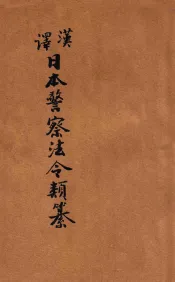 漢譯
日本警察法令類纂